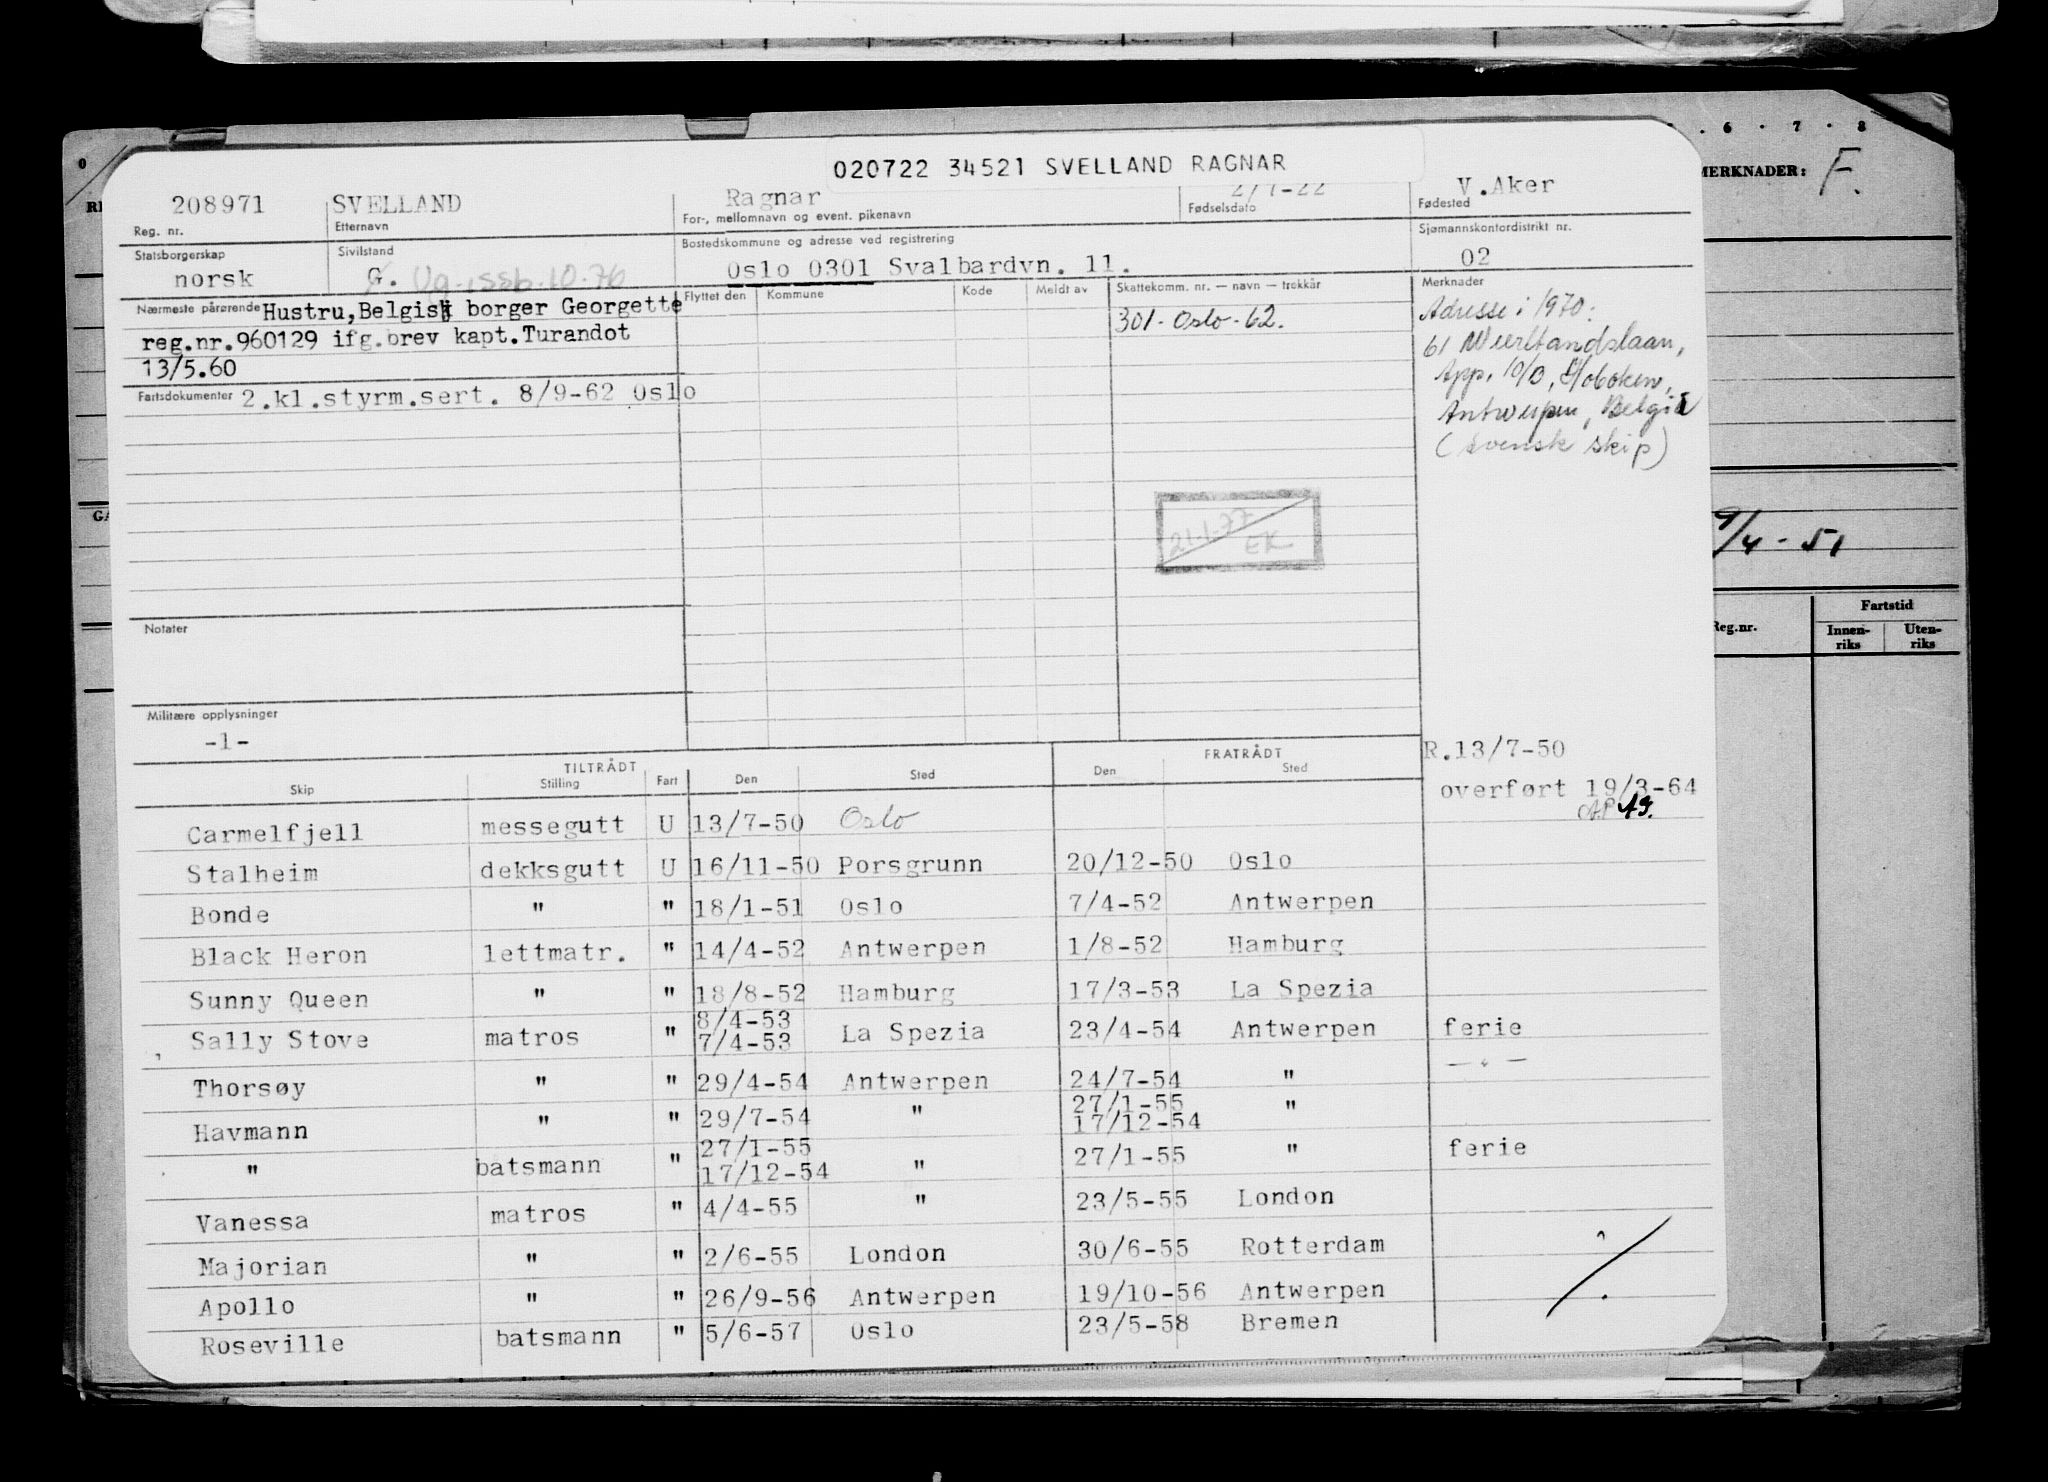 020722 34521 SVELLAND RAGNAR
0 · 6 · 7 · 8
MERKNADER: F.
208971 SVELLAND Ragnar 2/7-22 V.Aker
Reg. nr. Etternavn For-, mellomnavn og event. pikenavn Fødselsdato Fødested
Statsborgerskap Sivilstand Bostedskommune og adresse ved registrering Sjømannskontordistrikt nr.
norsk G. Ug. 10.76 Oslo 0301 Svalbardvn. 11. 02
Nærmeste pårørende Hustru, Belgisk borger Georgette
reg.nr.960129 ifg.brev kapt.Turandot
13/5.60
Flyttet den Kommune Kode Meldt av Skattekomm. nr. — navn — trekkår
301 - Oslo - 62.
Merknader
Adresse i 1970:
61
App. 10/D, Hoboken,
Antwerpen, Belgia
(svensk skip)
Fartsdokumenter 2.kl.styrm.sert. 8/9-62 Oslo
21.1.77
EK
9/4 - 51
Fartstid
Reg.nr. Innen-riks Uten-riks
Notater
Militære opplysninger
-1-
R.13/7-50
overført 19/3-64
TILTRÅDT FRATRÅDT
Skip Stilling Fart Den Sted Den Sted
Carmelfjell messegutt U 13/7-50 Oslo
Stalheim dekksgutt U 16/11-50 Porsgrunn 20/12-50 Oslo
Bonde " " 18/1-51 Oslo 7/4-52 Antwerpen
Black Heron lettmatr. " 14/4-52 Antwerpen 1/8-52 Hamburg
Sunny Queen " " 18/8-52 Hamburg 17/3-53 La Spezia
8/4-53
Sally Stove matros " 7/4-53 La Spezia 23/4-54 Antwerpen ferie
Thorsøy " " 29/4-54 Antwerpen 24/7-54 " — " —
27/1-55
Havmann " " 29/7-54 " 17/12-54 "
27/1-55
" batsmann " 17/12-54 " 27/1-55 " ferie
Vanessa matros " 4/4-55 " 23/5-55 London
Majorian " " 2/6-55 London 30/6-55 Rotterdam
Apollo " " 26/9-56 Antwerpen 19/10-56 Antwerpen
Roseville batsmann " 5/6-57 Oslo 23/5-58 Bremen